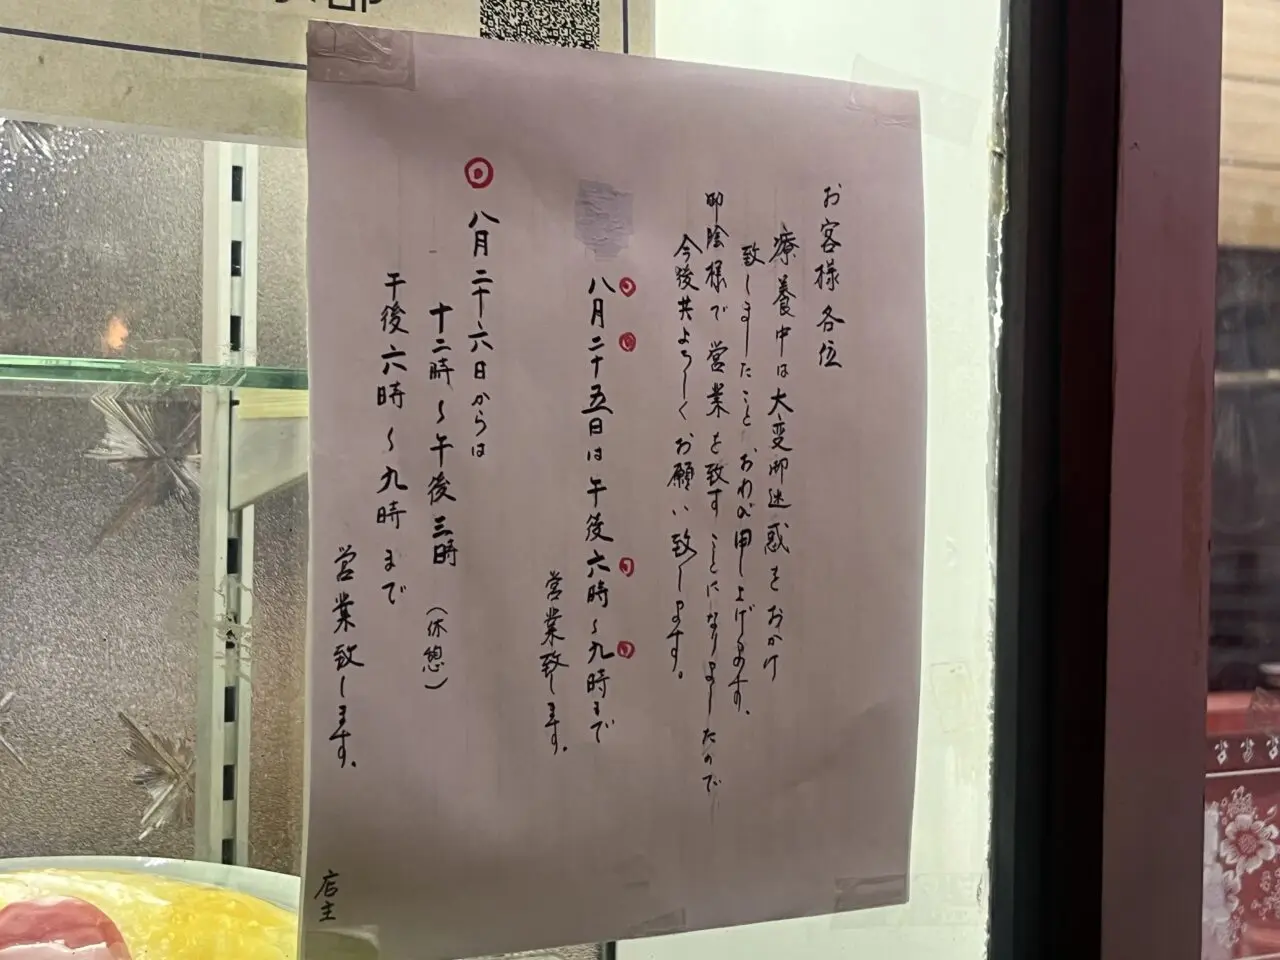 お客様各位
療養中は大変御迷惑をおかけ
致しましたことおわび申し上げます。
御陰様で営業を致すことになりましたので
今後共よろしくお願い致します。
八月二十五日は午後六時〜九時まで
営業致します。
八月二十六日からは
十二時〜午後三時(休憩)
午後六時〜九時まで
営業致します。
店主